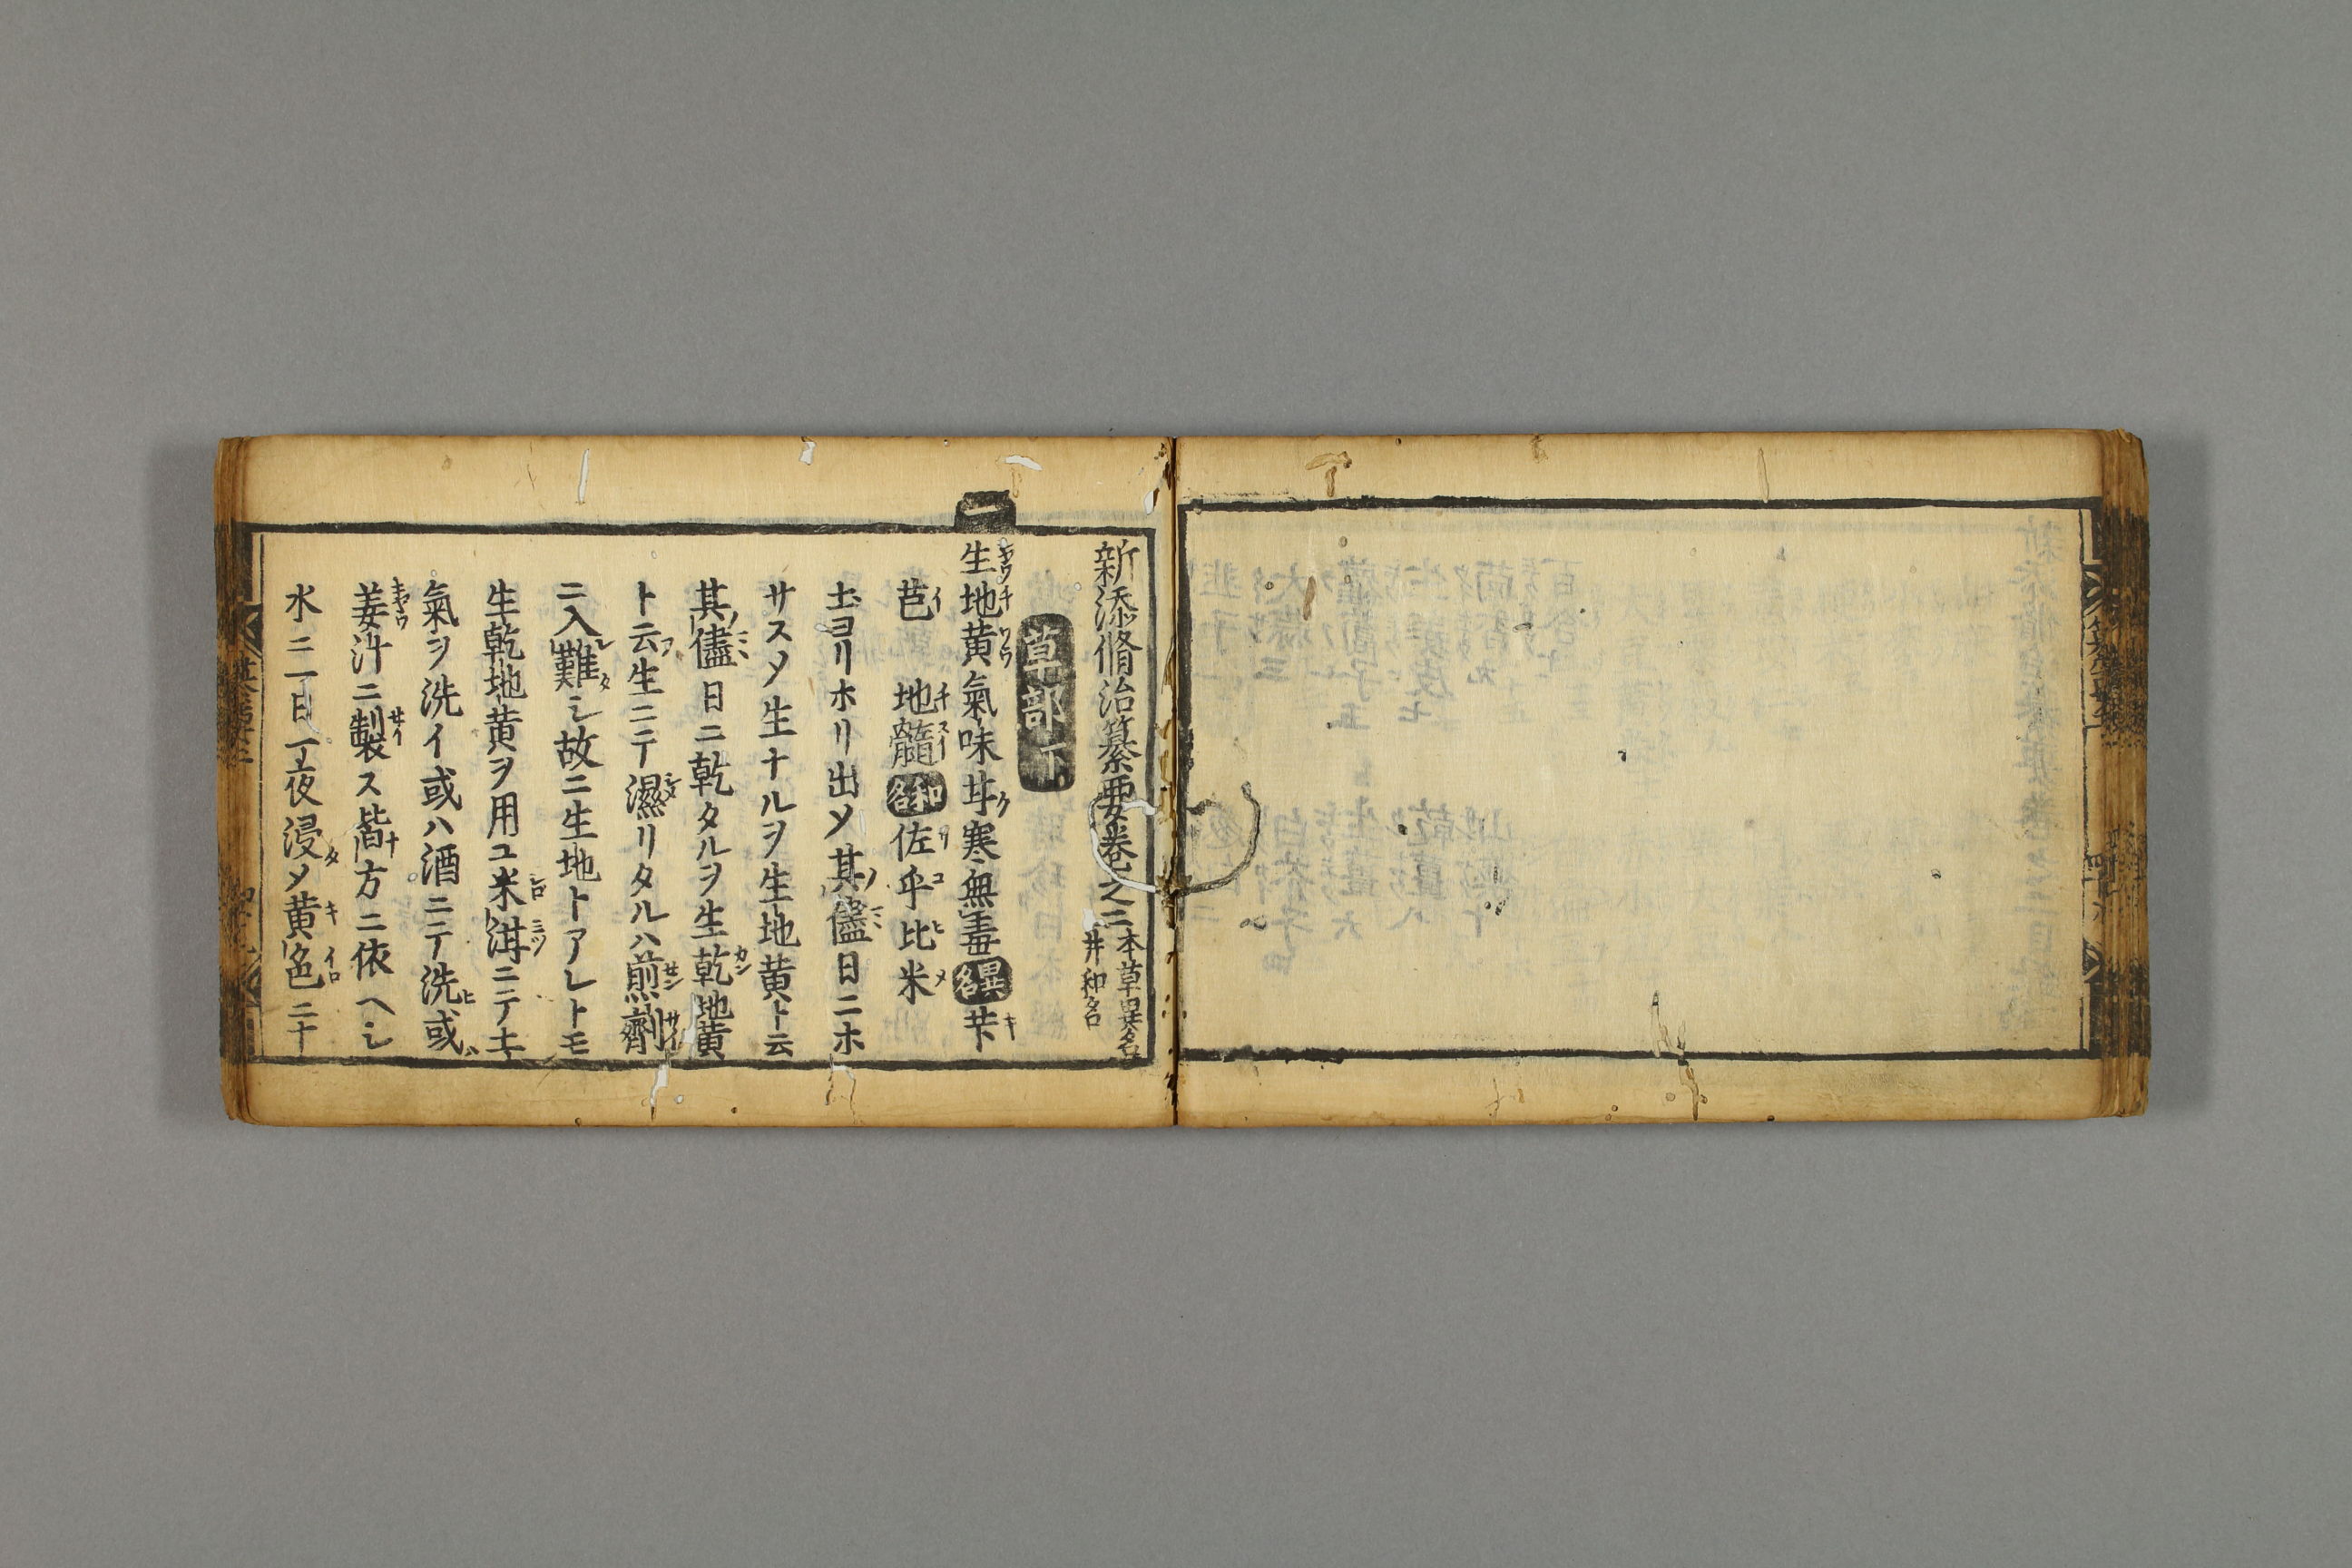 新添脩治纂要卷之三本草異名
并和名
草部下
一
生地黄氣味甘寒無毒異名芐
芑 地髓和名佐乎比米
土ヨリホリ出〆其儘日ニホ
サス〆生ナルヲ生地黄ト云
其儘日ニ乾タルヲ生乾地黄
ト云生ニテ濕リタルハ煎劑
ニ入難シ故ニ生地トアレトモ
生乾地黄ヲ用ユ米泔ニテ土
氣ヲ洗イ或ハ酒ニテ洗或
姜汁ニ製ス皆方ニ依ヘシ
水ニ一日一夜浸〆黄色ニナ